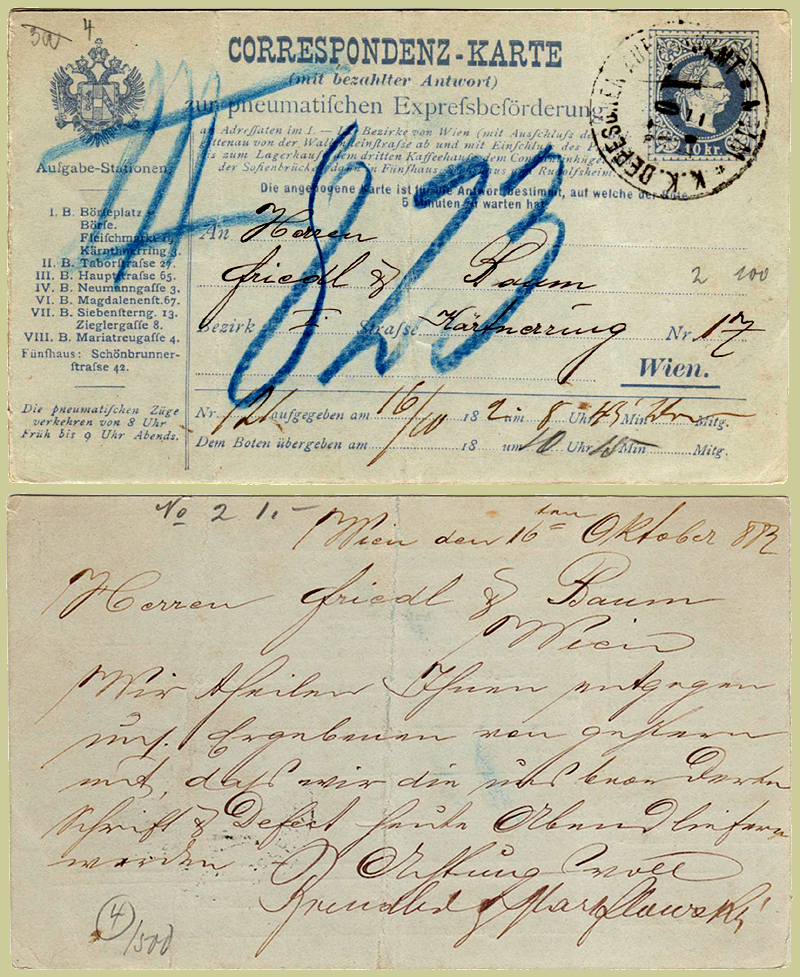 5a 4
CORRESPONDENZ-KARTE
(mit bezahlter Antwort)
zur pneumatischen Expressbeförderung
an Adressaten im I. — Bezirke von Wien (mit Ausschluss
gittenau von der Wallensteinstraße ab und mit Einschluss des
bis zum Lagerhaus dem dritten Kaffeehause, dem
der Sofienbrücke dann in Fünfhaus Rudolfsheim.
Die angebogene Karte ist für die Antwort bestimmt, auf welche der Bote
5 Minuten zu warten hat.
10 kr.
K. K. DEPESCHEN AUFGABS AMT WIEN
Aufgabs-Stationen
I. B. Börseplatz
Börse.
Fleischmarkt 19
Kärnthnerring 3.
II. B. Taborstrasse 27.
III. B. Hauptstrasse 65.
IV. B. Neumanngasse 3.
VI. B. Magdalenenst. 67.
VII. B. Siebensterng. 13.
Zieglergasse 8.
VIII. B. Mariatreugasse 4.
Fünfhaus: Schönbrunner-
strasse 42.
Die pneumatischen Züge
verkehren von 8 Uhr
Früh bis 9 Uhr Abends.
823
An Herren
Friedl & Baum
2 100
Bezirk I Strasse Kärtnerring Nr 17
Wien.
Nr. 121 aufgegeben am 16/10 18 82 um 8 Uhr 45 Min Mitg.
Dem Boten übergeben am 18 um 10 Uhr 15 Min Mitg.
No 2 1.-
Wien den 16ten Oktober 882
Herren Friedl & Baum
Wien
Wir theilen Ihnen entgegen
uns. Ergebenen von gestern
mit, dass wir die uns beorderte
Schrift & Defect heute Abend liefern
werden
Achtungsvoll
4/500